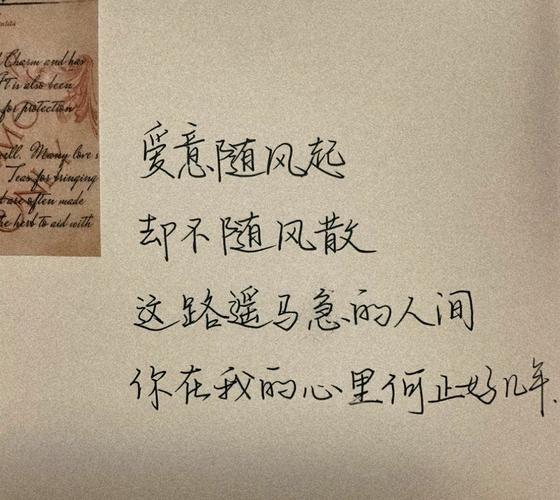 Charm and has
It is also been
for protection
ell. Many love s
Teas for bringing
t are often made
he herb to aid with
爱意随风起
却不随风散
这路遥马急的人间
你在我的心里何止好几年.